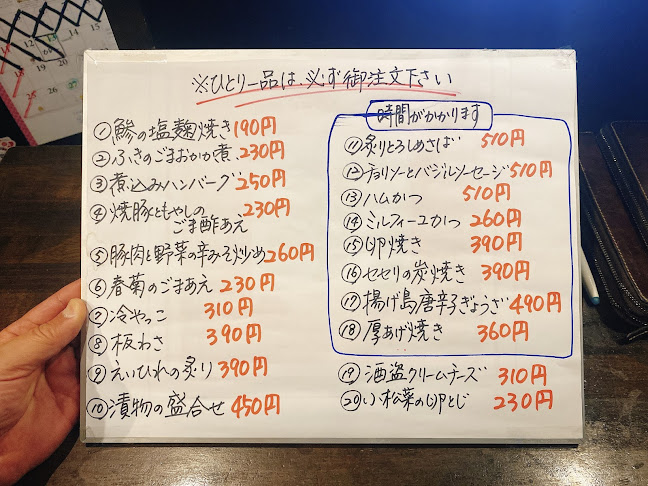 ※ひとり一品は、必ず御注文下さい
①鯵の塩麹焼き 190円
②ふきのごまおかか煮 230円
③煮込みハンバーグ 250円
④焼豚ともやしの 230円
ごま酢あえ
⑤豚肉と野菜の辛みそ炒め 260円
⑥春菊のごまあえ 230円
⑦冷やっこ 310円
⑧板わさ 390円
⑨えいひれの炙り 390円
⑩漬物の盛合せ 450円
時間がかかります
⑪炙りとろしめさば 510円
⑫チョリソーとバジルソーセージ 510円
⑬ハムかつ 510円
⑭ミルフィーユかつ 260円
⑮卵焼き 390円
⑯セセリの炭焼き 390円
⑰揚げ島唐辛子ぎょうざ 490円
⑱厚あげ焼き 360円
⑲酒盗クリームチーズ 310円
⑳小松菜の卵とじ 230円
12
13
19
20
25
26
27